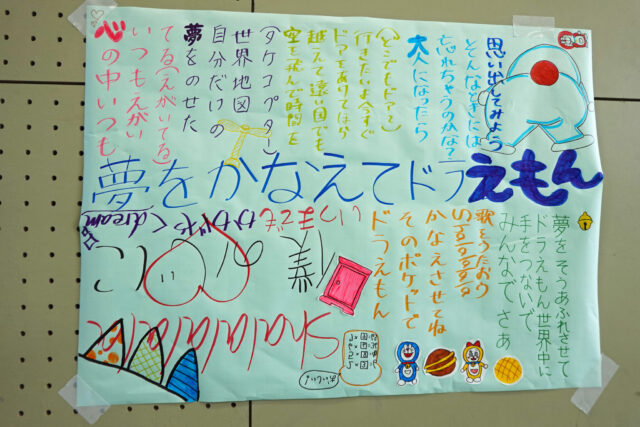 心の中いつも
いつもえがい
てる(えがいてる)
夢をのせた
自分だけの
世界地図
(タケコプター)
空を飛んで時間を
越えて遠い国でも
ドアをあけてほら
行きたいよ今すぐ
(どこでもドア〜)
大人になったら
忘れちゃうのかな?
そんなときには
思い出してみよう
夢をかなえてドラえもん
shalalalala
僕の に
いつまでもかがやくdream
ドラえもん
そのポケットで
かなえさせてね
歌をうたおう
みんなでさあ
手をつないで
ドラえもん世界中に
夢をそうあふれさせて